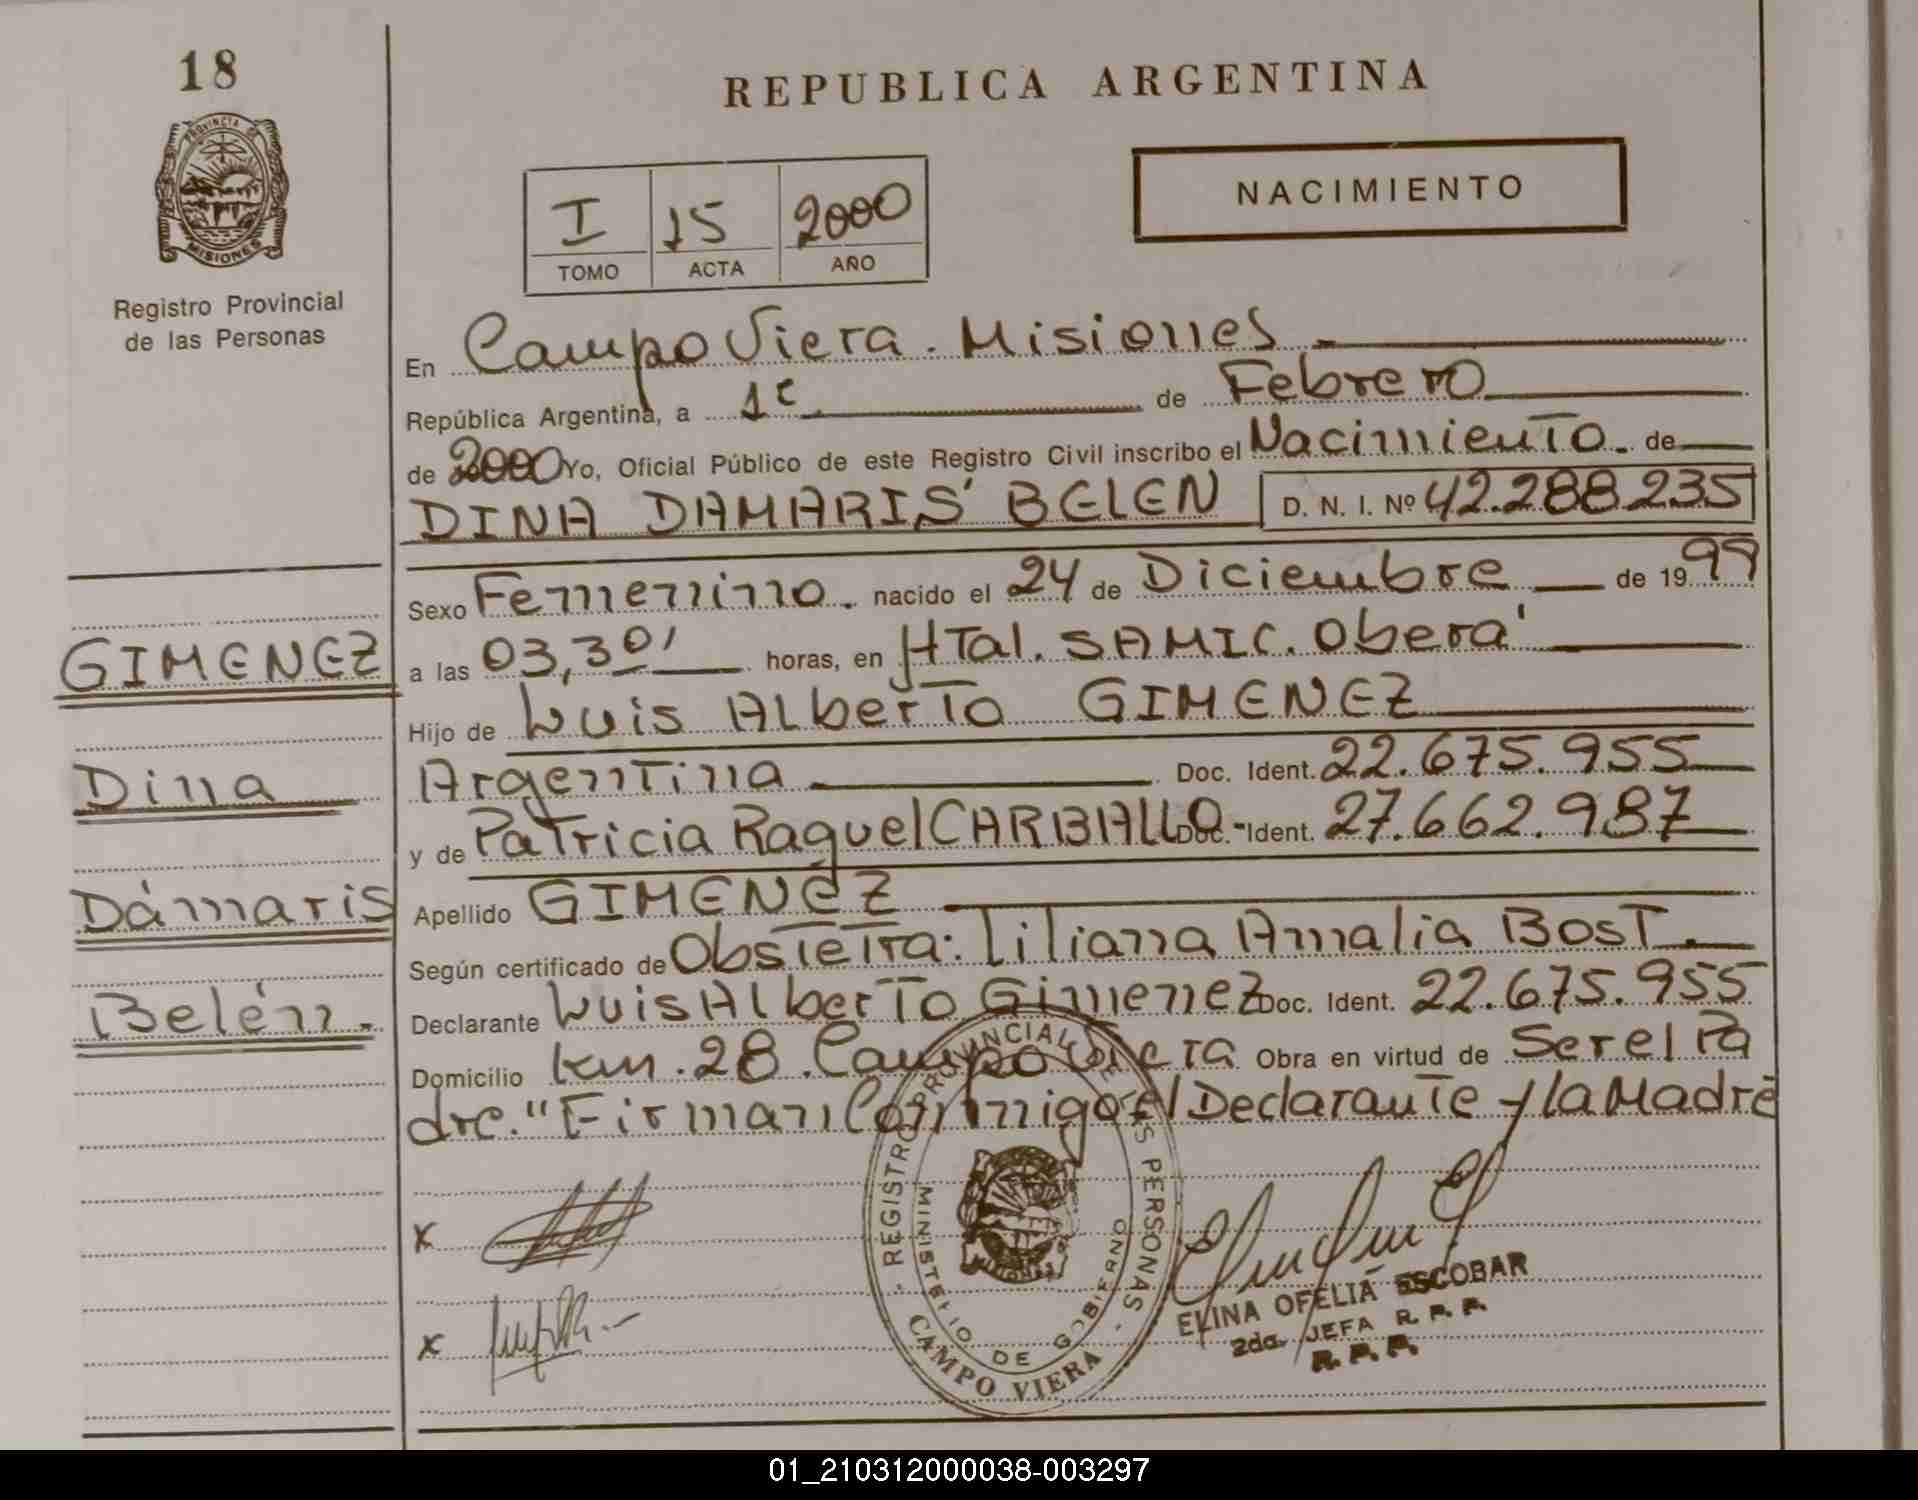 18
PROVINCIA DE
MISIONES
Registro Provincial
de las Personas
REPUBLICA ARGENTINA
NACIMIENTO
I 15 2000
TOMO ACTA AÑO
En Campo Viera. Misiones
República Argentina, a 1º de Febrero
de 2000 Yo, Oficial Público de este Registro Civil inscribo el Nacimiento. de
DINA DAMARIS BELEN D. N. I. Nº 42.288.235
Sexo Femenino. nacido el 24 de Diciembre de 19 99
GIMENEZ
a las 03,30' horas, en HTal. SAMIC. Oberá
Hijo de Luis Alberto GIMENEZ
Dina
Argentina Doc. Ident. 22.675.955
y de Patricia Raquel CARBALLO - Doc. Ident. 27.662.987
Dámaris
Apellido GIMENEZ
Según certificado de Obstetra: Liliana Amalia BOST.
Belén.
Declarante Luis Alberto Gimenez Doc. Ident. 22.675.955
Domicilio km. 28. Campo Viera Obra en virtud de Ser el Pa
dre." Firman Conmigo el Declarante y la Madre
x
x
REGISTRO PROVINCIAL DE LAS PERSONAS
MINISTERIO DE GOBIERNO
MISIONES
CAMPO VIERA
ELINA OFELIA ESCOBAR
2da. JEFA R. P. P.
R. P. P.
01_210312000038-003297